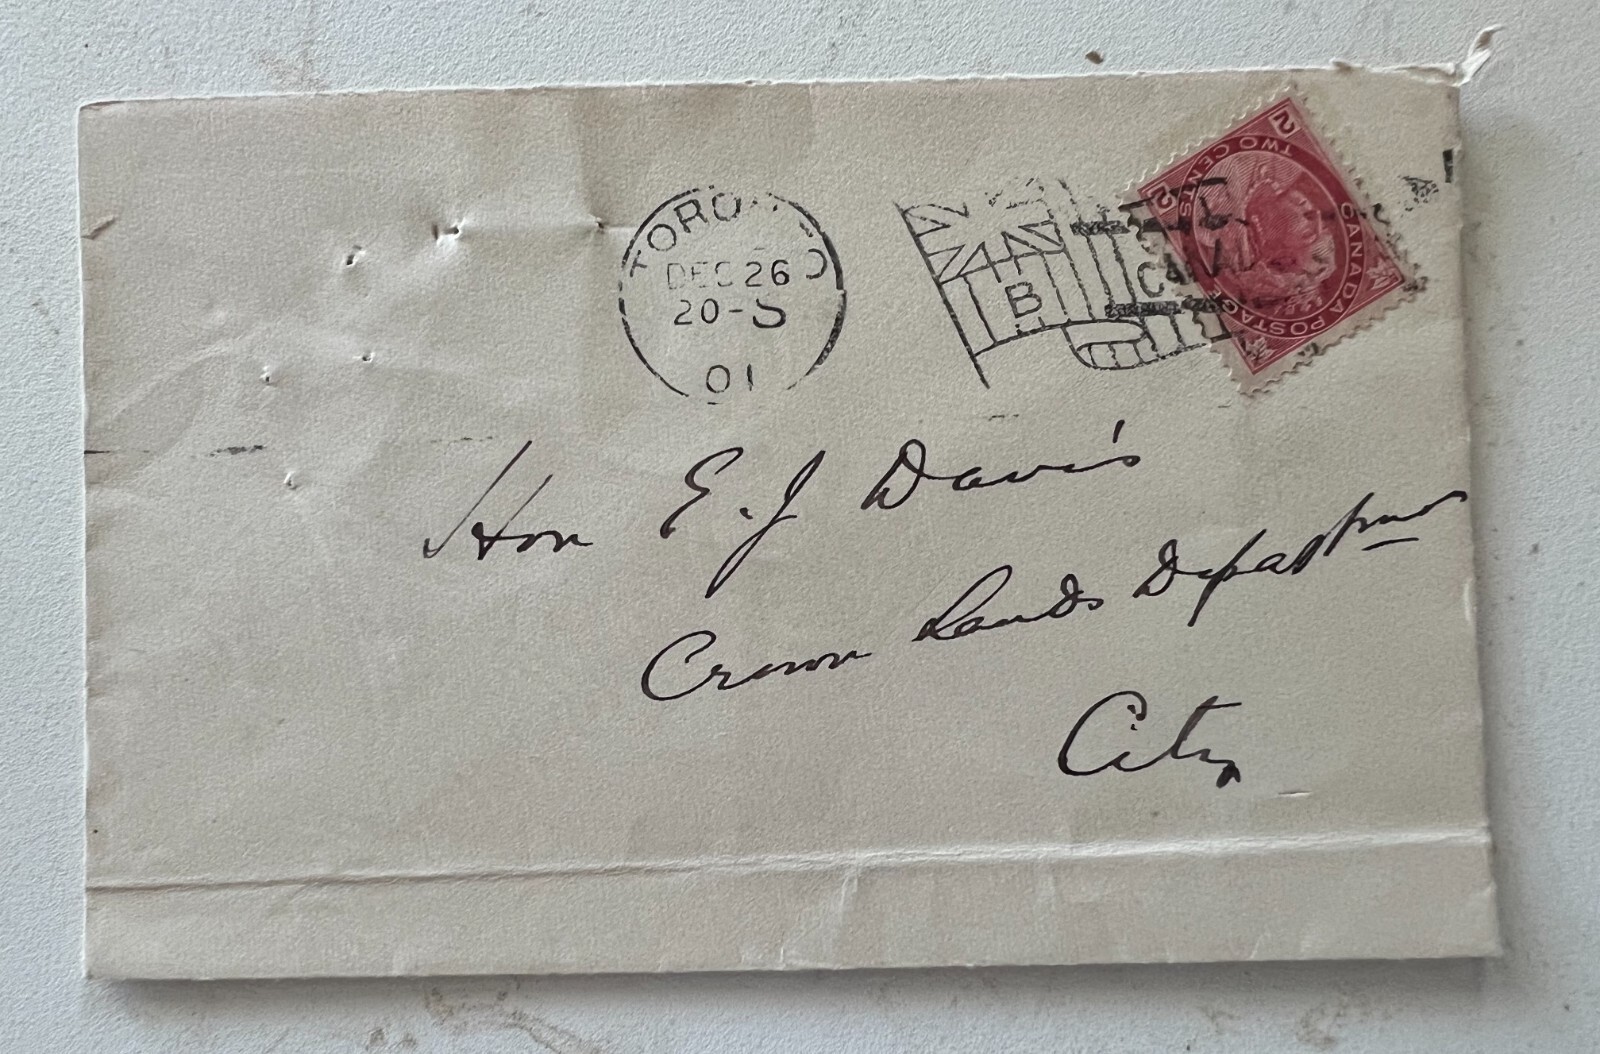 TORONTO
DEC 26
20-S
01
B
CANADA
2
TWO CENTS
2
CANADA POSTAGE
Hon E. J Davis
Crown Lands Department
City